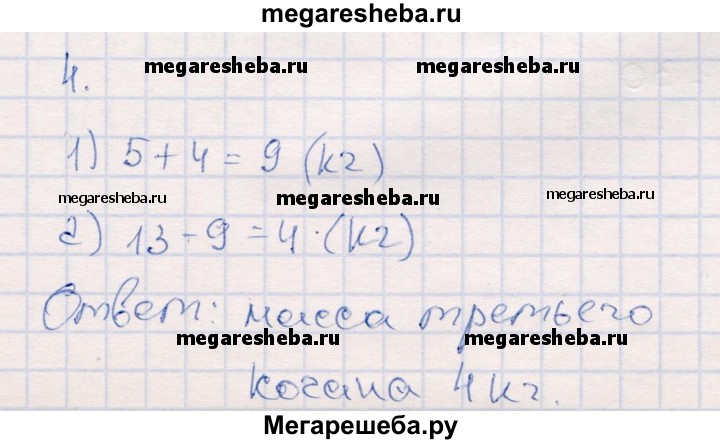 megaresheba.ru
4.
megaresheba.ru megaresheba.ru
1) 5+4=9 (кг)
megaresheba.ru megaresheba.ru megaresheba.ru
2) 13-9=4 (кг)
Ответ: масса третьего
megaresheba.ru megaresheba.ru
кочана 4 кг.
Мегарешеба.ру